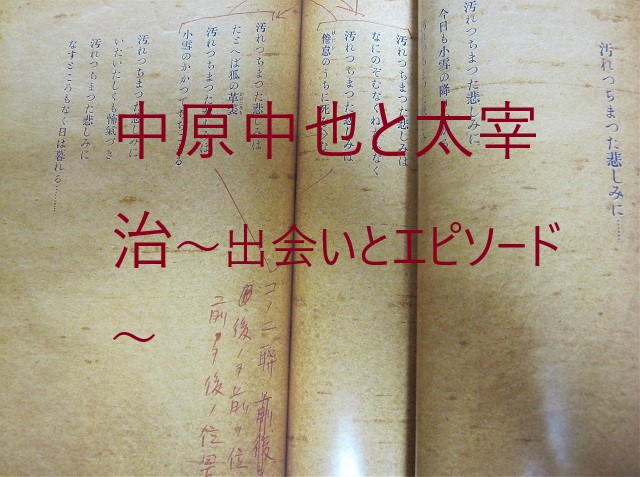 中原中也と太宰
治～出会いとエピソード
～
汚れつちまつた悲しみに……
汚れつちまつた悲しみに
今日も小雪の降
汚れつちまつた悲しみは
なにのぞむなくねがふなく
汚れつちまつた悲しみは
倦怠のうちに死を夢む
汚れつちまつた悲しみは
たとへば狐の革裘
汚れつちまつた悲しみは
小雪のかかつてちぢこまる
汚れつちまつた悲しみに
いたいたしくも怖氣づき
汚れつちまつた悲しみに
なすところもなく日は暮れる……
コノ二聯 前後
後ノヲ前ノ位
前ノヲ後ノ位置